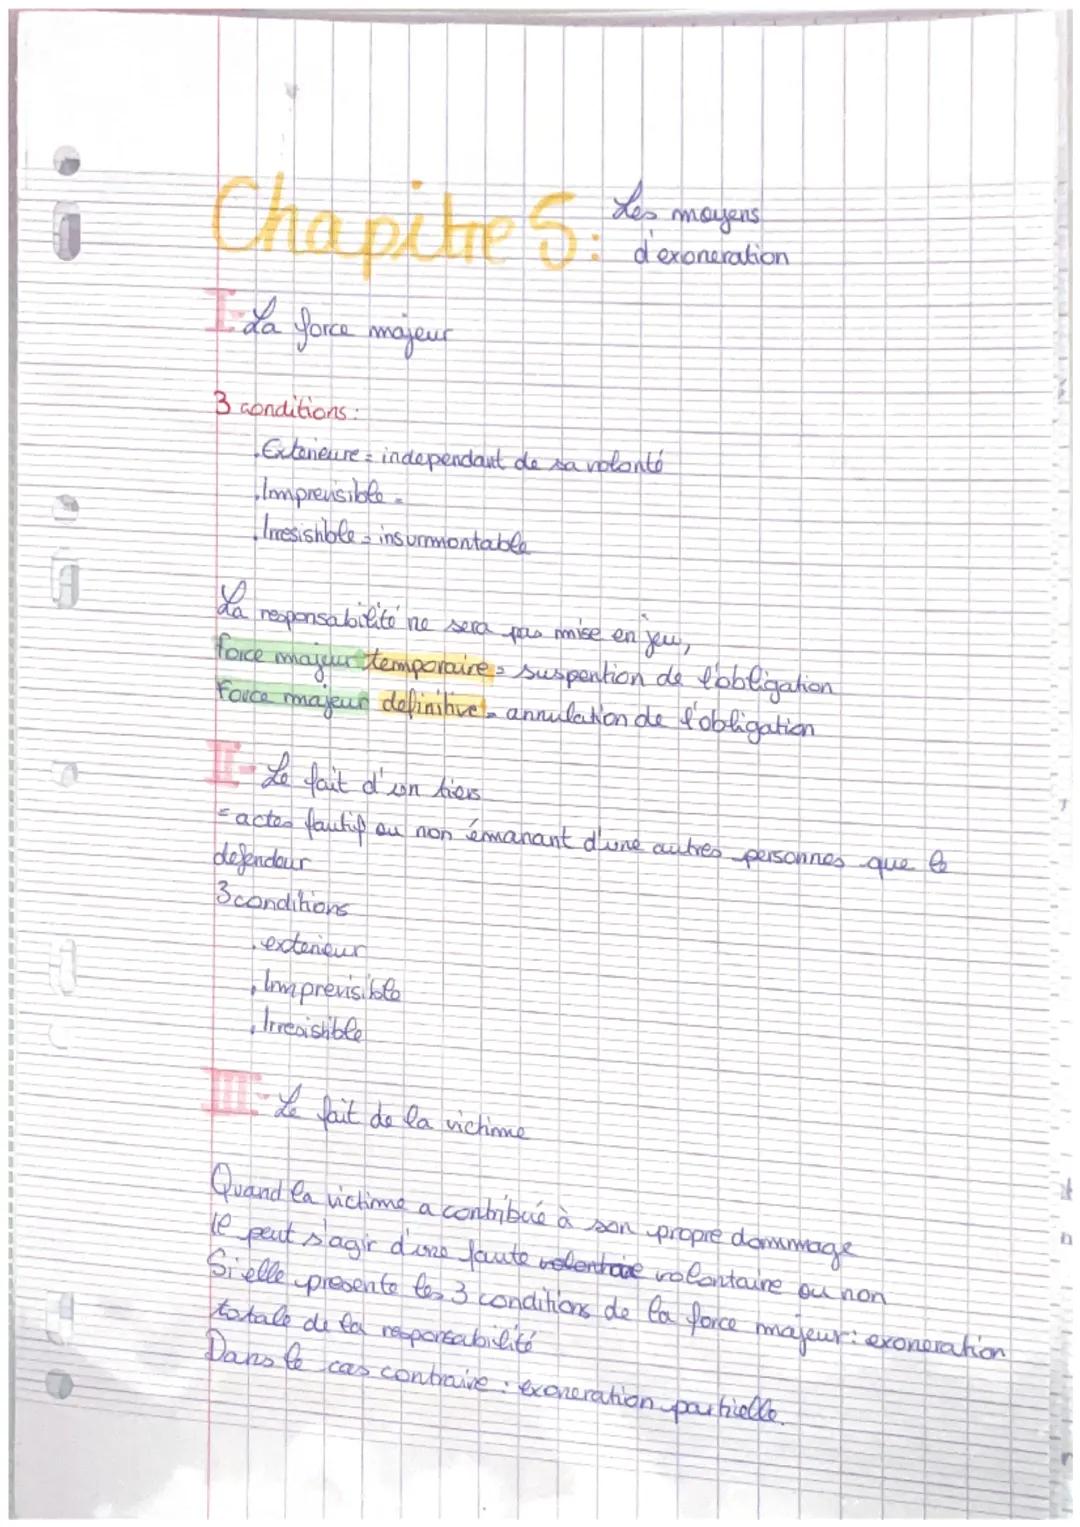 Chapitre 5: Les moyens
d'exoneration
I- La force majeur
3 conditions:
.Exterieure = independant de sa volonté
.Imprevisible =
.Irresistible = insurmontable
La responsabilité ne sera pas mise en jeu,
force majeur temporaire = suspention de l'obligation
Force majeur definitive = annulation de l'obligation
II- Le fait d'un tiers
= actes fautif ou non émanant d'une autres personnes que le
defendeur
3 conditions
. exterieur
. Imprevisible
. Irresistible
III- Le fait de la victime
Quand la victime a contribué à son propre dommage
Il peut s'agir d'une faute volontaire volontaire ou non
Si elle presente les 3 conditions de la force majeur: exoneration
totale de la responsabilité
Dans le cas contraire : exoneration partielle.